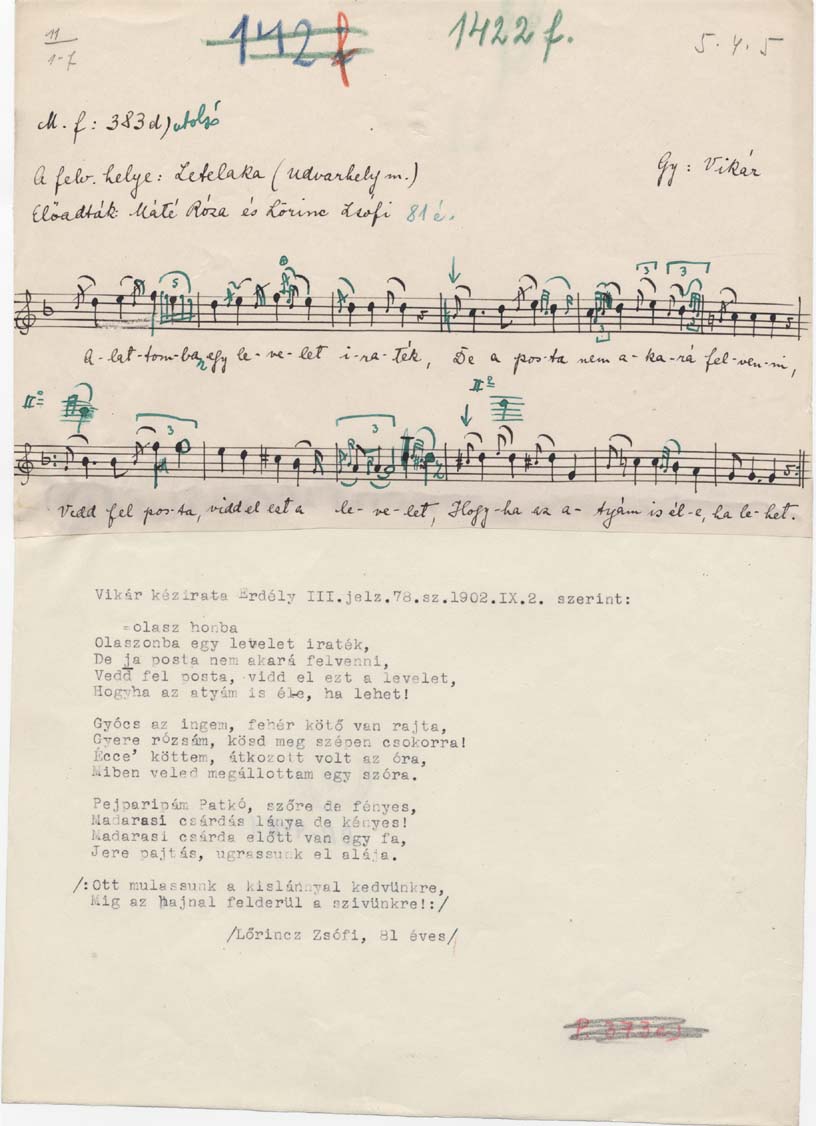 11
1-7
142 f
1422 f.
5. 4. 5
M. f: 383d) utolsó
A felv. helye: Zetelaka (Udvarhely m.)
Gy: Vikár
Előadták: Máté Róza és Lőrinc Zsófi 81 é.
5
3
3
A-lat-tom-ban egy le-ve-let i-ra-ték, De a pos-ta nem a-ka-rá fel-ven-ni,
II=
II=
3
3
Vedd fel pos-ta, vidd el ezt a le-ve-let, Hogy-ha az a-tyám is él-e, ha le-het.
Vikár kézirata Erdély III.jelz.78.sz.1902.IX.2. szerint:
=olasz honba
Olaszonba egy levelet iraték,
De ja posta nem akará felvenni,
Vedd fel posta, vidd el ezt a levelet,
Hogyha az atyám is éle, ha lehet!
Gyócs az ingem, fehér kötő van rajta,
Gyere rózsám, kösd meg szépen csokorra!
Écce' köttem, átkozott volt az óra,
Miben veled megállottam egy szóra.
Pejparipám Patkó, szőre de fényes,
Madarasi csárdás lánya de kényes!
Madarasi csárda előtt van egy fa,
Jere pajtás, ugrassunk el alája.
/:Ott mulassunk a kislánnyal kedvünkre,
Mig az hajnal felderül a szivünkre!:/
/Lőrincz Zsófi, 81 éves/